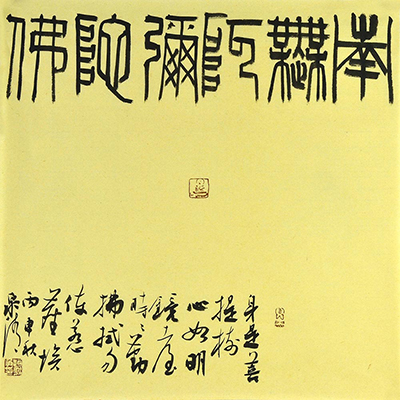 南無阿彌陀佛
身是菩
提樹
心如明
鏡臺
時〻勤
拂拭勿
使惹
塵埃
丙申秋